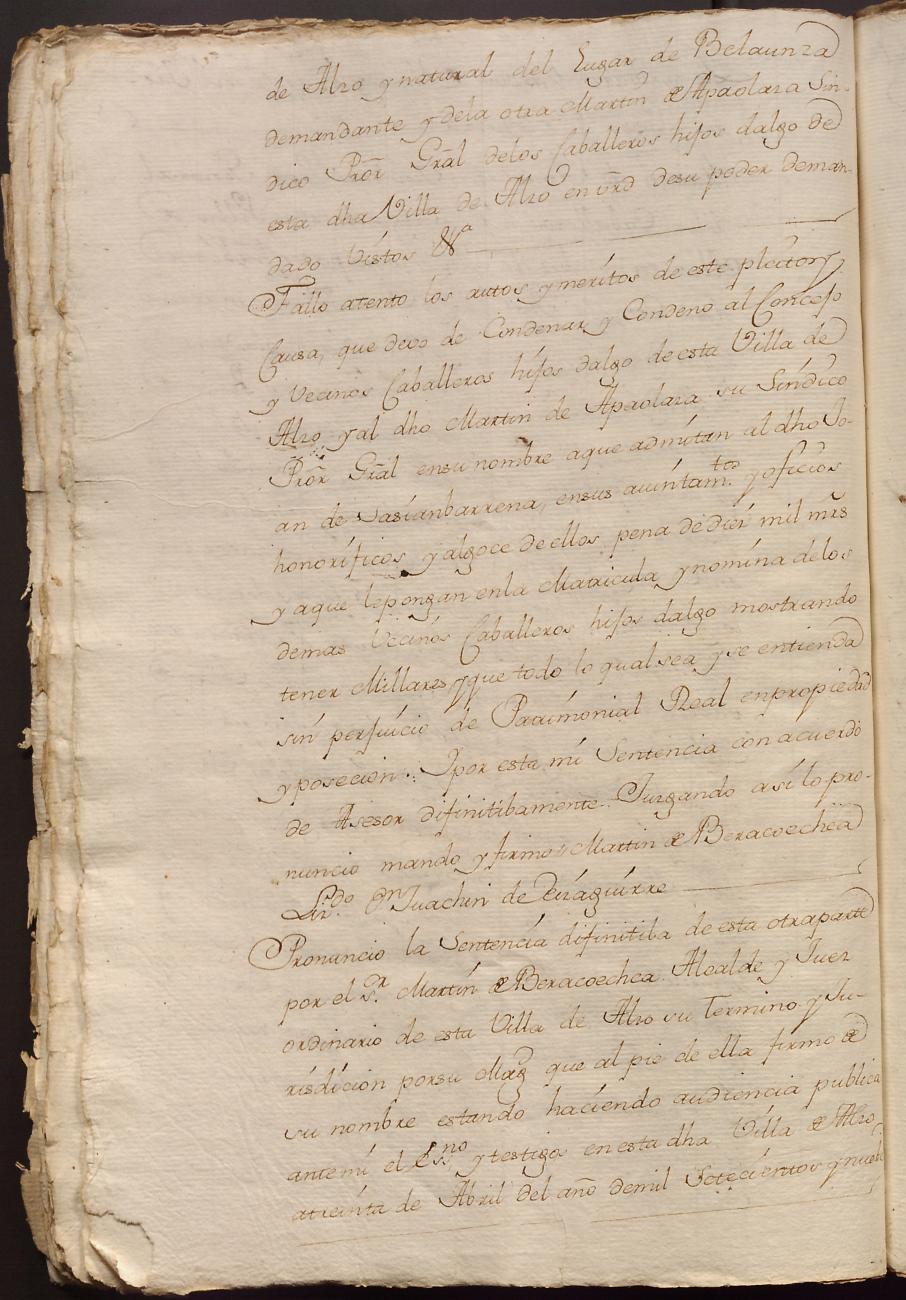 de Alzo y natural del Lugar de Belaunza
demandante y dela otra Martin de Apaolaza Sin-
dico Pror̃ Gral̃ delos Caballeros hijos dalgo de
esta dha Villa de Alzo en vrd̃ desu poder deman
dado Vistos &ª
Fallo atento los autos y meritos de este pleito y
Causa, que devo de Condenar y Condeno al Concejo
y Vecinos Caballeros hijos dalgo de esta Villa de
Alzo y al dho Martin de Apaolaza su Sindico
Pror̃ Gral̃ ensu nombre aque admitan al dho Jo-
an de Sasianbarrena, ensus aiuntamtos y oficios
honorificos y algoce de ellos pena de diez mil mrs̃
y aque lepongan enla Matricula y nomina delos
demas Vecinos Caballeros hijos dalgo mostrando
tener Millares, y que todo lo qual sea y se entienda
sin perjuicio de Patrimonial Real enpropiedad
y posecion. Ipor esta mi Sentencia con acuerdo
de Asesor difinitibamente Juzgando asi lo pro-
nuncio mando y firmo: Martin de Beracoechea
Lizdo Dn Juachin de Eizaguirre
Pronuncio la Sentencia difinitiba de esta otraparte
por el Sr. Martin de Beracoechea Alcalde y Juez
ordinario de esta Villa de Alzo su Termino y Ju-
risdicion porsu Mag̃ que al pie de ella firmo de
su nombre estando haciendo audiencia publica
antemi el Esno y testigos en esta dha Villa de Alzo
atreinta de Abril del año demil Setecientos y nueb